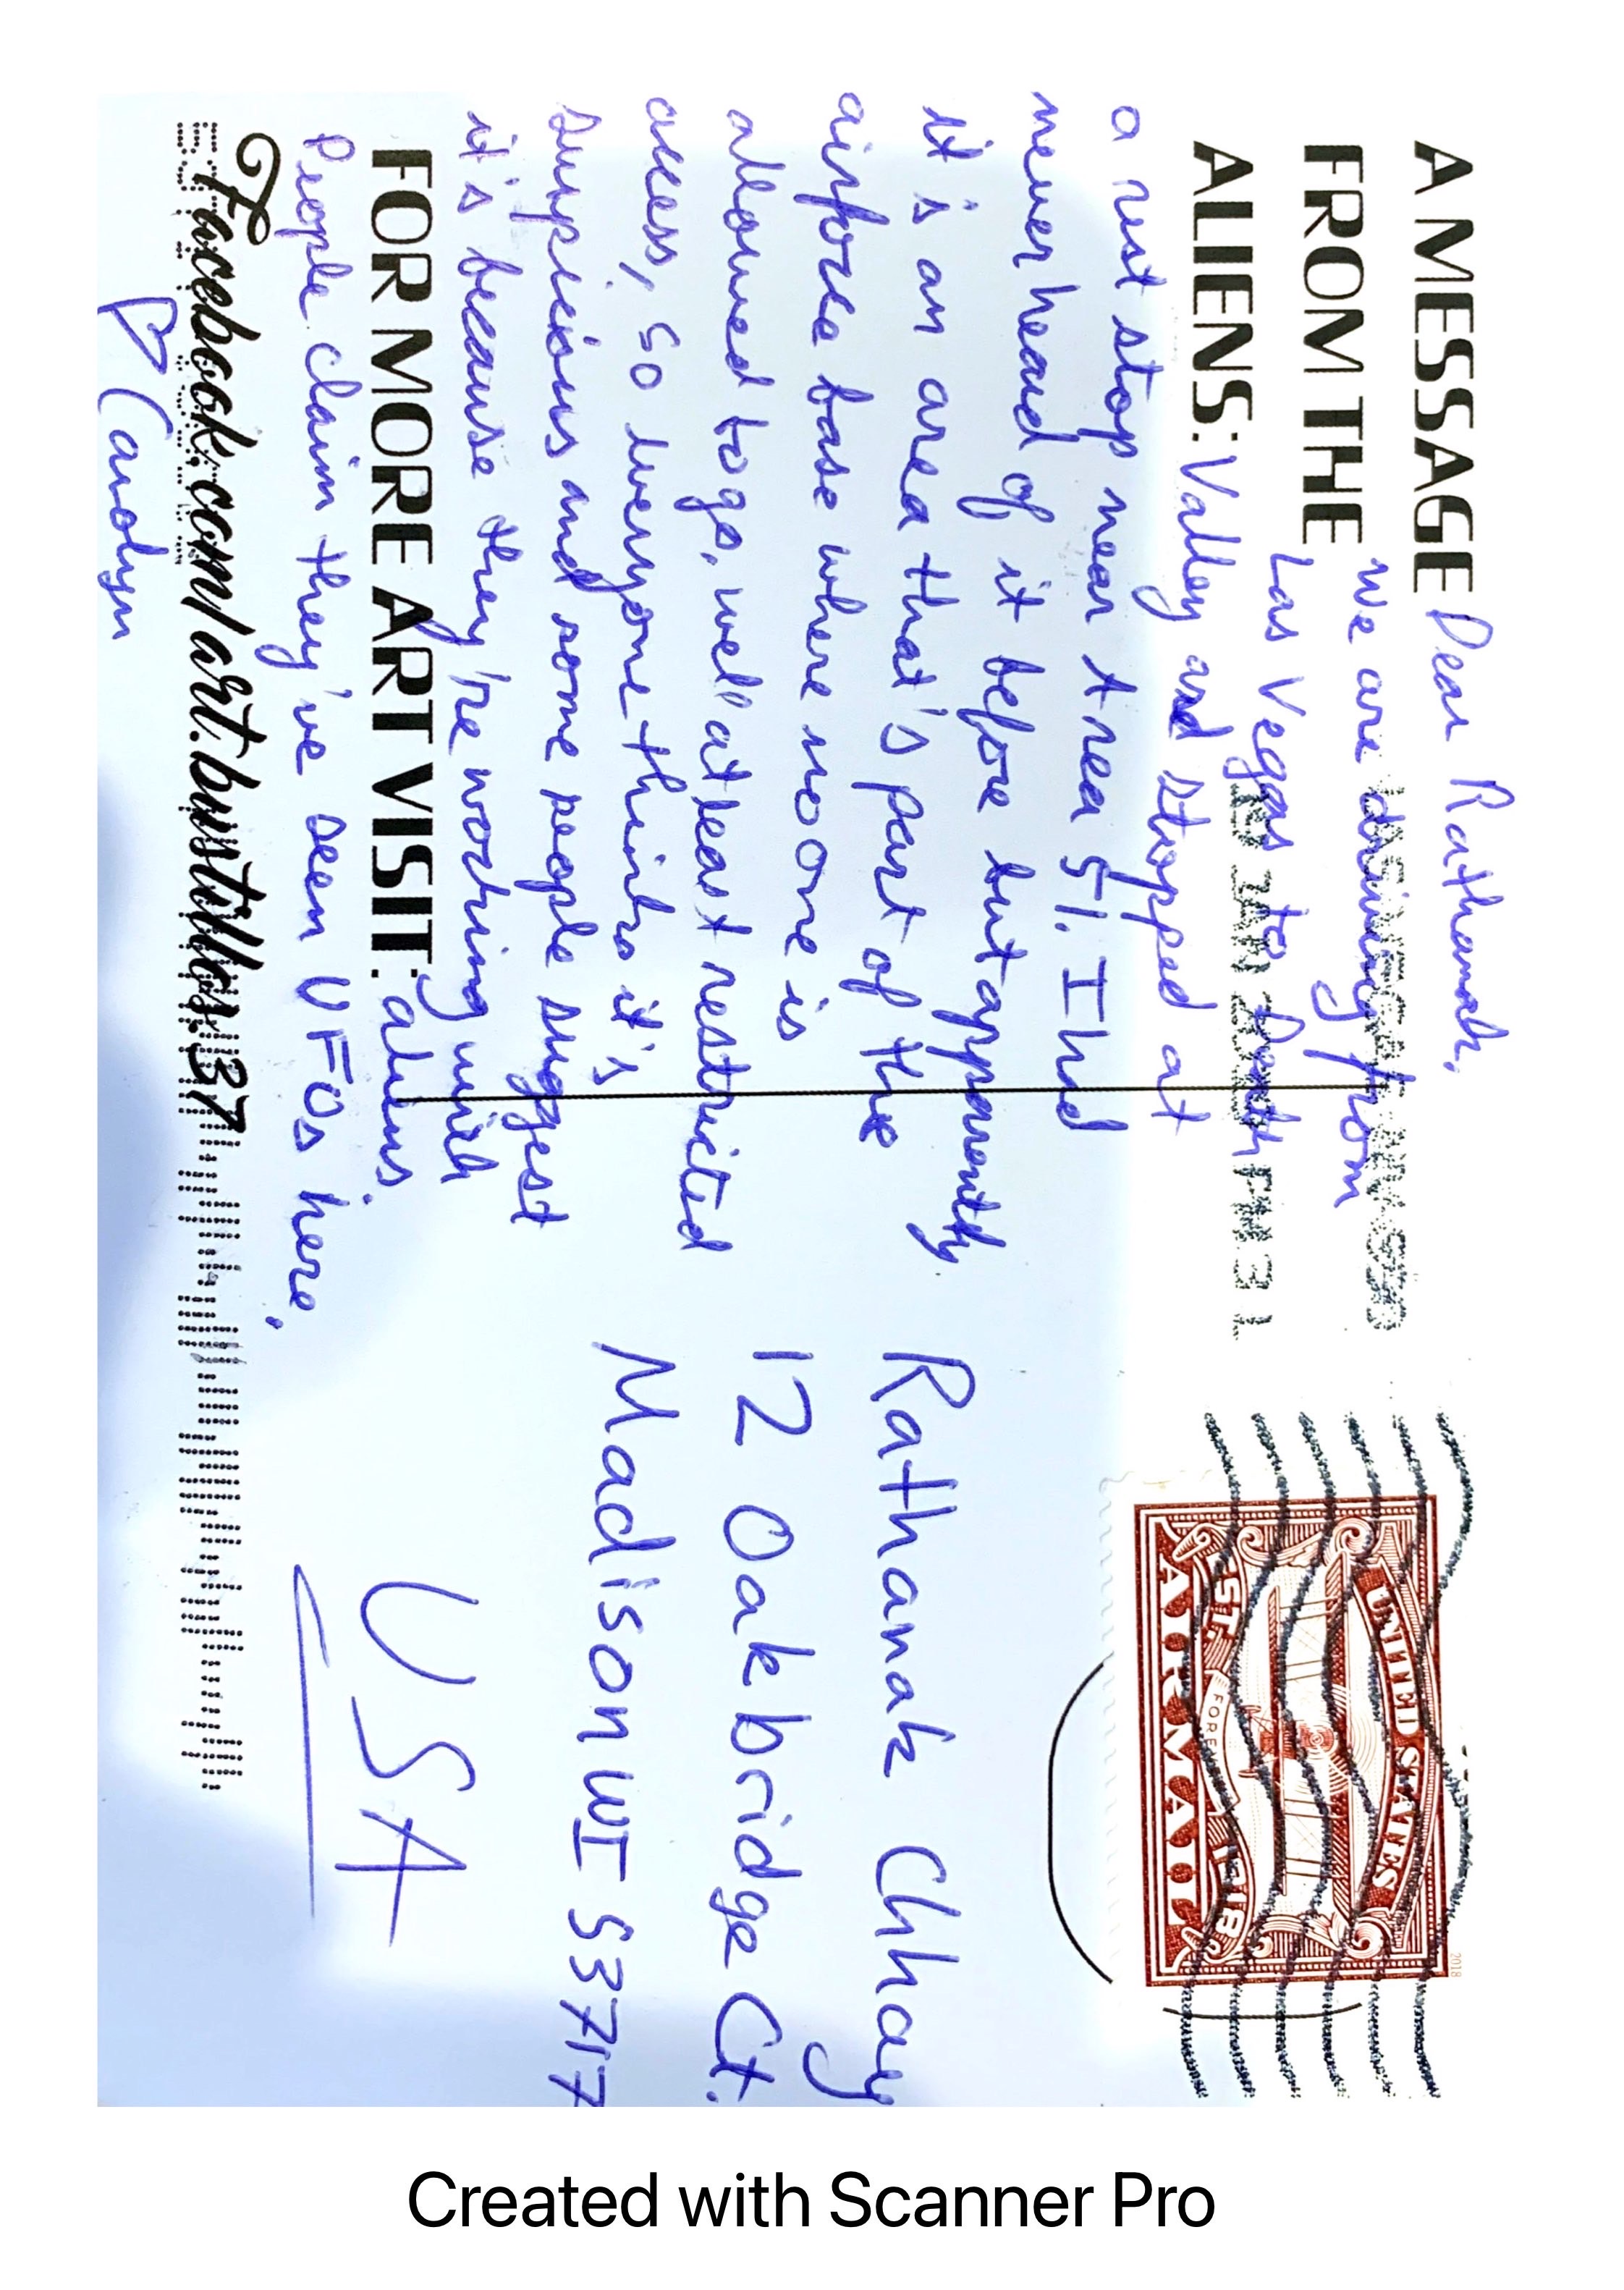 A MESSAGE
FROM THE
ALIENS:
Dear Rathanak,
we are driving from
Las Vegas to Death
Valley and stopped at
a rest stop near Area 51. I had
never heard of it before but apparently
it is an area that's part of the
airforce base where no one is
allowed to go, well at least restricted
access, so everyone thinks it's
suspicious and some people suggest
it's because they're working with
aliens.
People claim they've seen UFOs here.
♡ Carolyn
FOR MORE ART VISIT:
Facebook.com/art.bustillos.37
PM 3 L
UNITED STATES
EST. 1918
FOREVER
AIR MAIL
2018
Rathanak Chhay
12 Oakbridge Ct.
Madison WI 53717
USA
Created with Scanner Pro